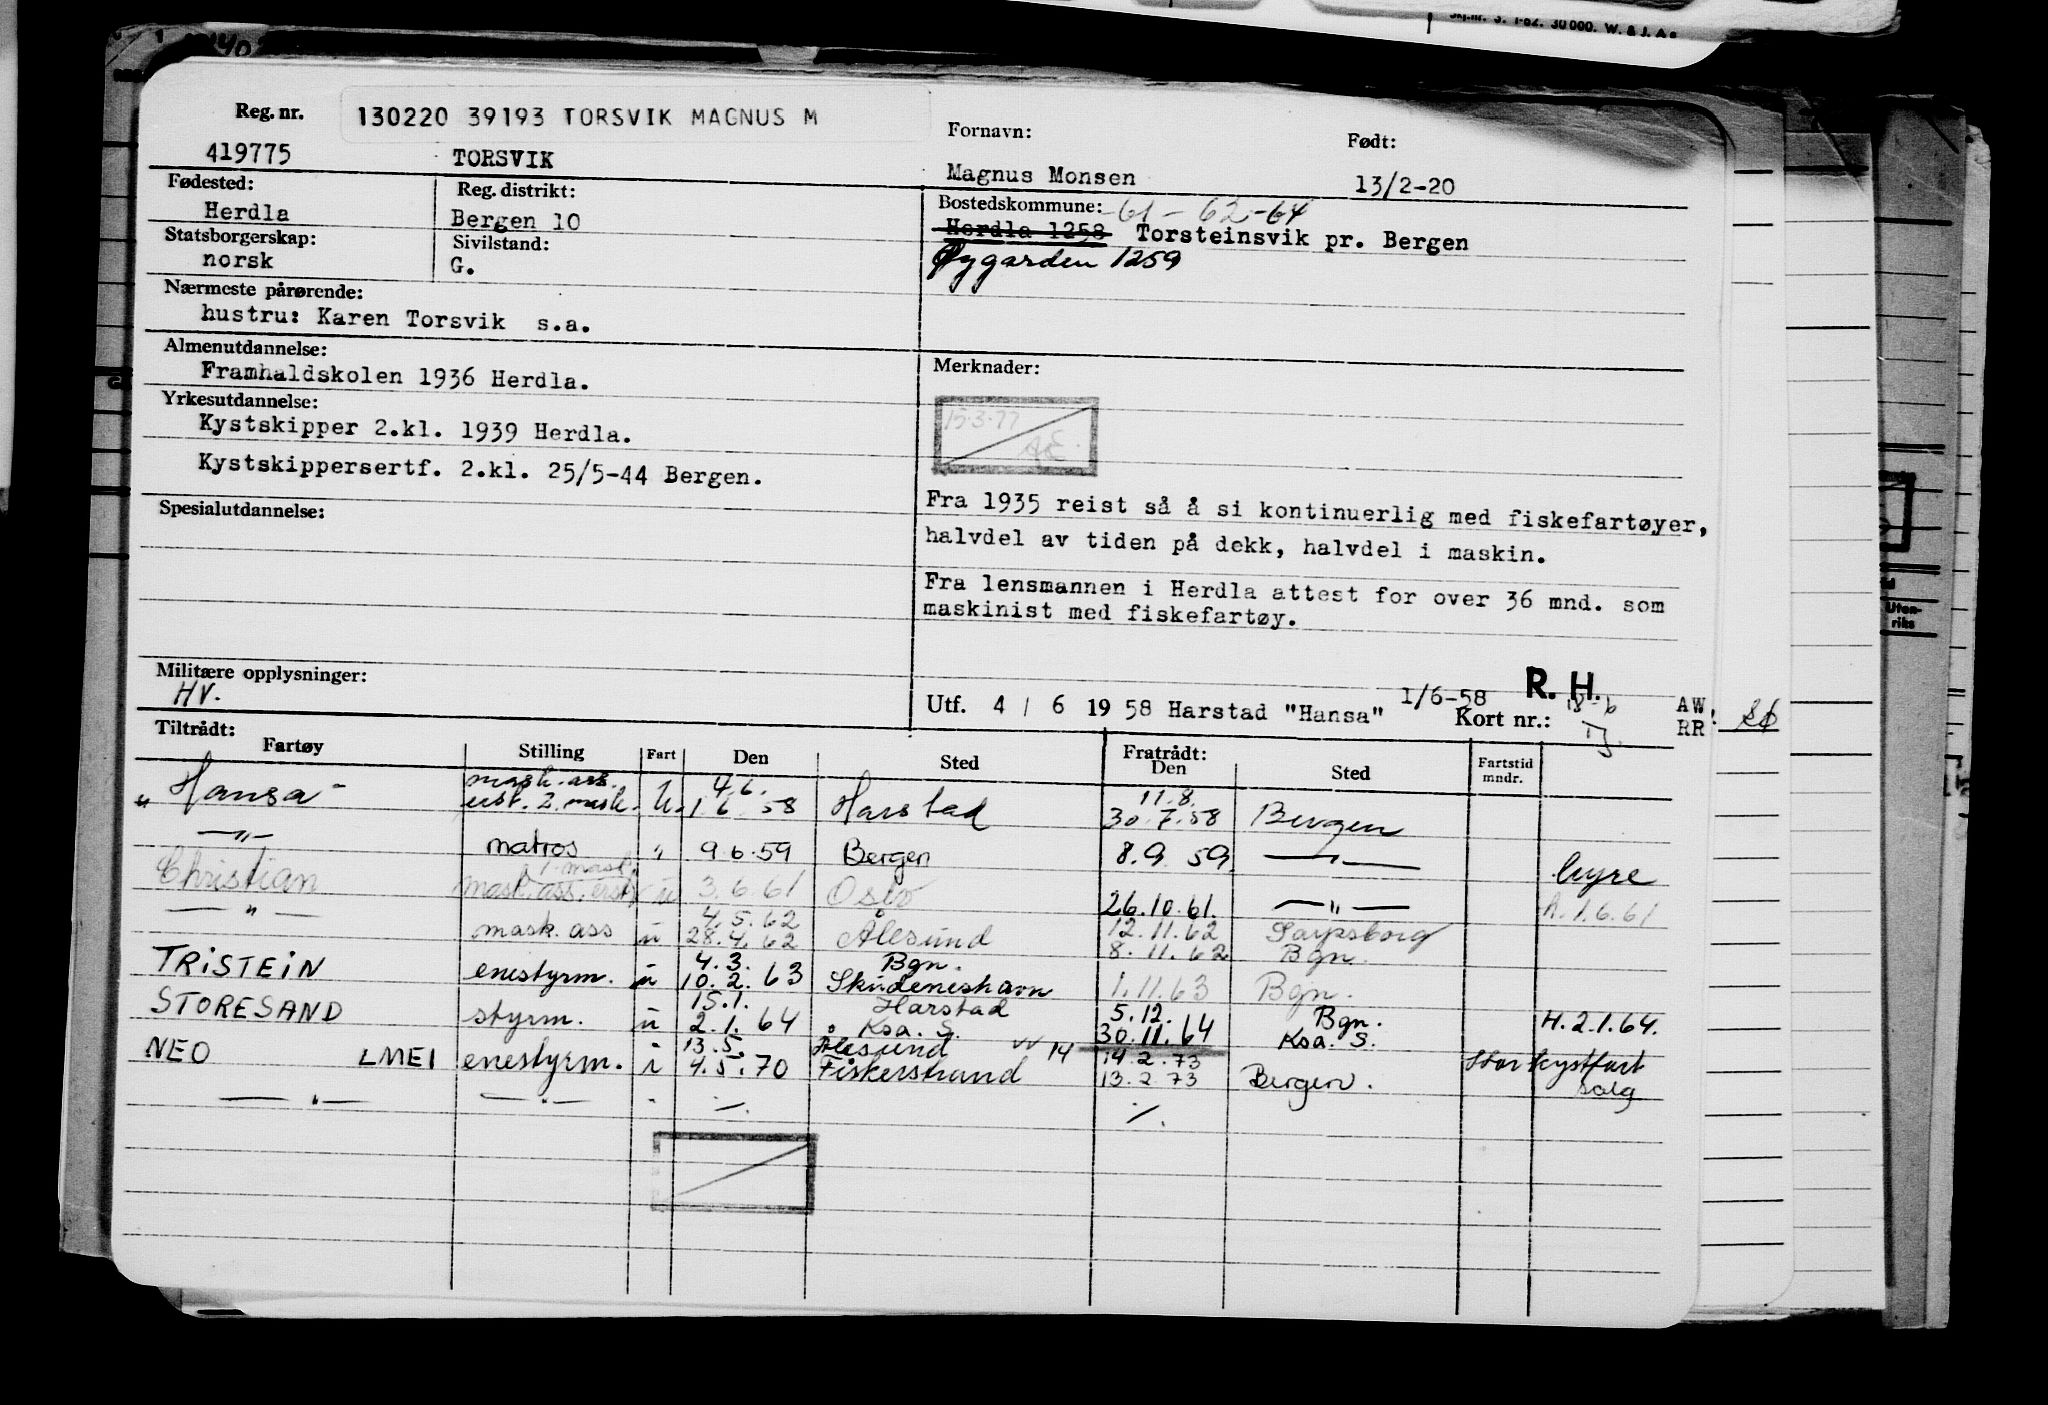 Skj.nr. 3. 1-62. 30 000. W. & J. A.
Reg. nr.
130220 39193 TORSVIK MAGNUS M
419775
TORSVIK
Fornavn:
Magnus Monsen
Født:
13/2-20
Fødested:
Herdla
Reg. distrikt:
Bergen 10
Bostedskommune: -61-62-64
Herdla 1258 Torsteinsvik pr. Bergen
Øygarden 1259
Statsborgerskap:
norsk
Sivilstand:
G.
Nærmeste pårørende:
hustru: Karen Torsvik s.a.
Almenutdannelse:
Framhaldskolen 1936 Herdla.
Yrkesutdannelse:
Kystskipper 2.kl. 1939 Herdla.
Kystskippersertf. 2.kl. 25/5-44 Bergen.
Spesialutdannelse:
Merknader:
15.3.77
Fra 1935 reist så å si kontinuerlig med fiskefartøyer,
halvdel av tiden på dekk, halvdel i maskin.
Fra lensmannen i Herdla attest for over 36 mnd. som
maskinist med fiskefartøy.
Militære opplysninger:
HV.
Utf. 4 / 6 19 58 Harstad "Hansa" 1/6-58
R. H.
Kort nr.: 18-6
AW
RR
Uten-
riks
Tiltrådt:
Fartøy Stilling Fart Den Sted Fratrådt: Den Sted Fartstid mndr.
mask. ass. 4.6. 11.8.
"Hansa" erst. 2. mask. U. 1.6.58 Harstad 30.7.58 Bergen
—"— matros " 9.6.59 Bergen 8.9.59 —"— Hyre
1. mask.
Christian mask. ass. erst. u 3.6.61 Oslo 26.10.61. —"— h. 1.6.61
4.5.62 12.11.62 Sarpsborg
—"— mask. ass u 28.4.62 Ålesund 8.11.62 Bgn.
4.3. Bgn.
TRISTEIN enestyrm. u 10.2.63 Skudeneshavn 1.11.63 Bgn.
15.1. Harstad 5.12. Bgn.
STORESAND styrm. u 2.1.64 Ksa. S. 30.11.64 Ksa. S. H. 2.1.64.
13.5. Ålesund vv 14 14.2.73
NEO LMEI enestyrm. i 4.5.70 Fiskerstrand 13.2.73 Bergen. Stor kystfart
salg
—"— —"— " ./. ./.